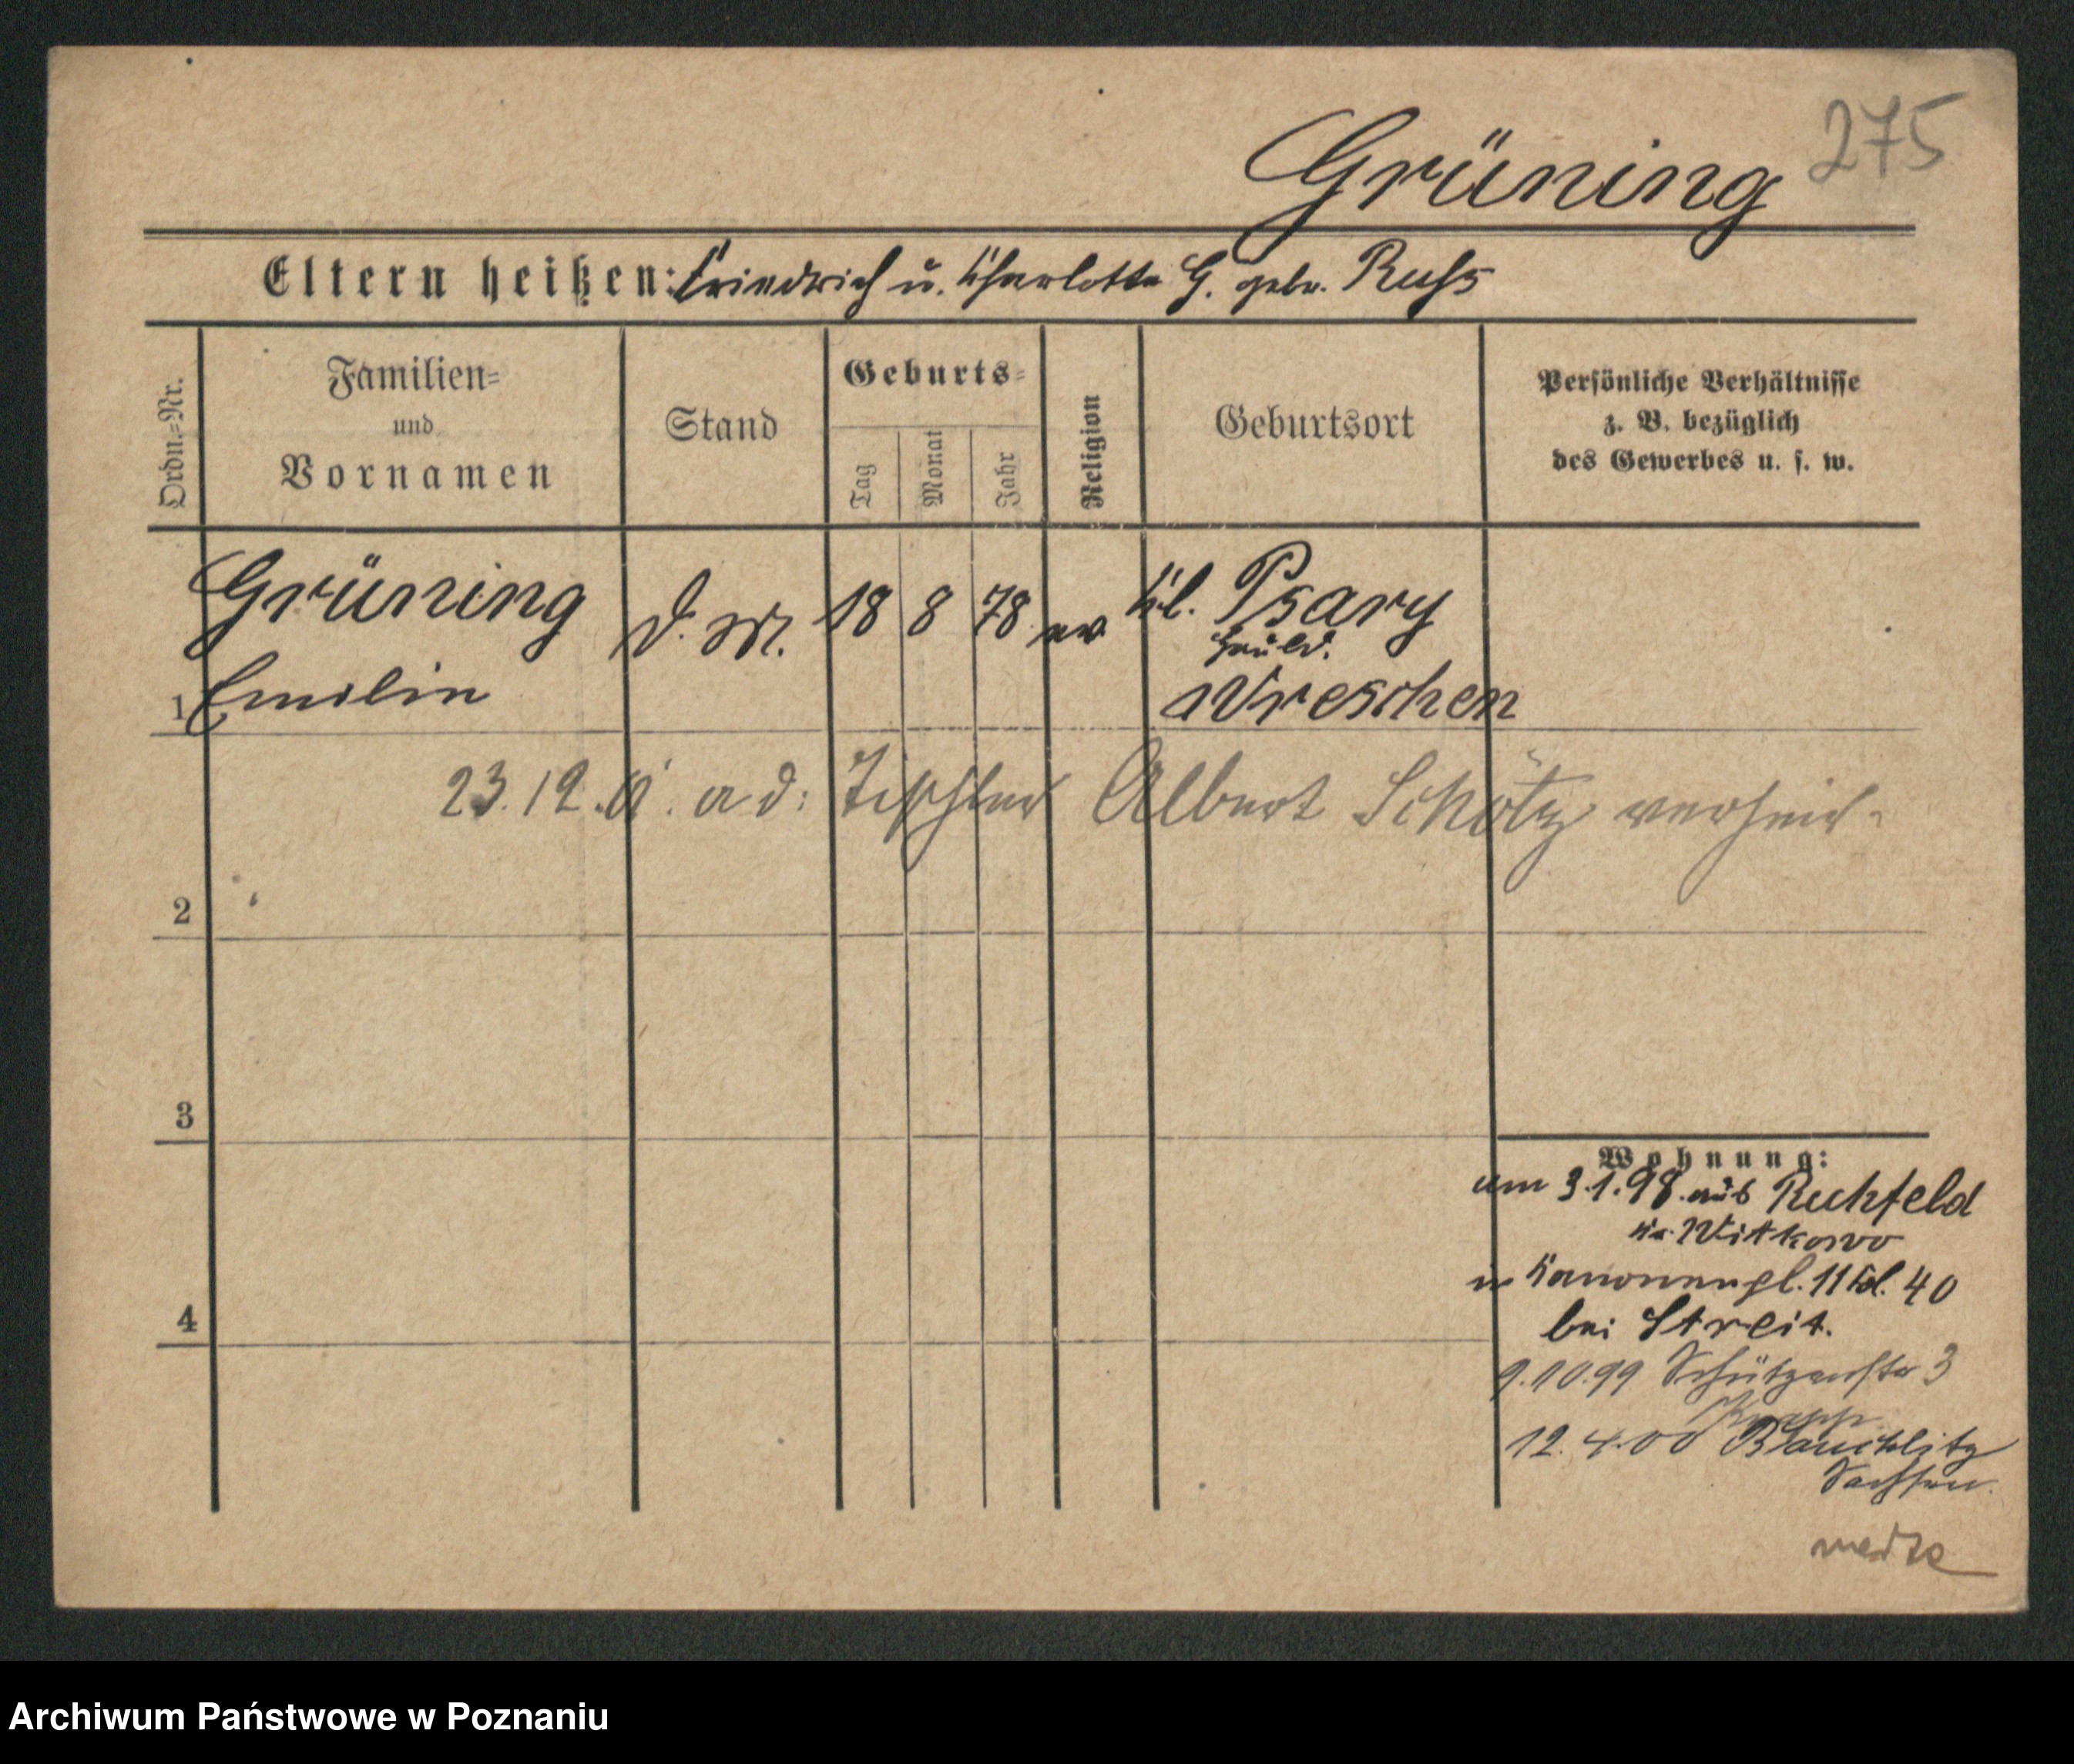 Grüning 275
Eltern heißen: Friedrich u. Charlotte G. geb. Russ
Ordn.=Nr.
Familien=
und
Vornamen
Stand
Geburts=
Tag
Monat
Jahr
Religion
Geburtsort
Persönliche Verhältnisse
z. B. bezüglich
des Gewerbes u. s. w.
Grüning
Emilie
D. M. 18 8 78 ev
Kl. Psary
Hauld.
Wreschen
1
23. 12. a d: Tischler Albert Schötz verheir.
2
3
4
Wohnung:
am 3.1.98. aus Ruchfeld
Kr. Witkowo
n Kanonenpl. 11 bl. 40
bei Streit.
9.10.99 Schützenstr 3
12. 4. 00
Sachsen.
Archiwum Państwowe w Poznaniu